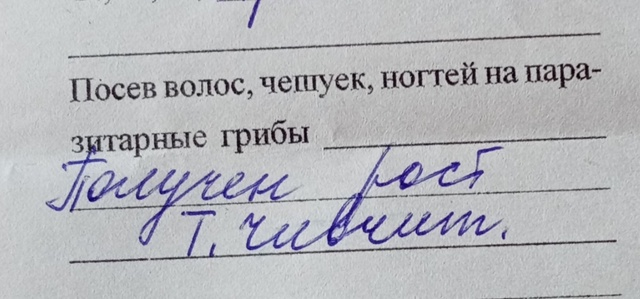 Посев волос, чешуек, ногтей на пара-
зитарные грибы
Получен рост
Т.